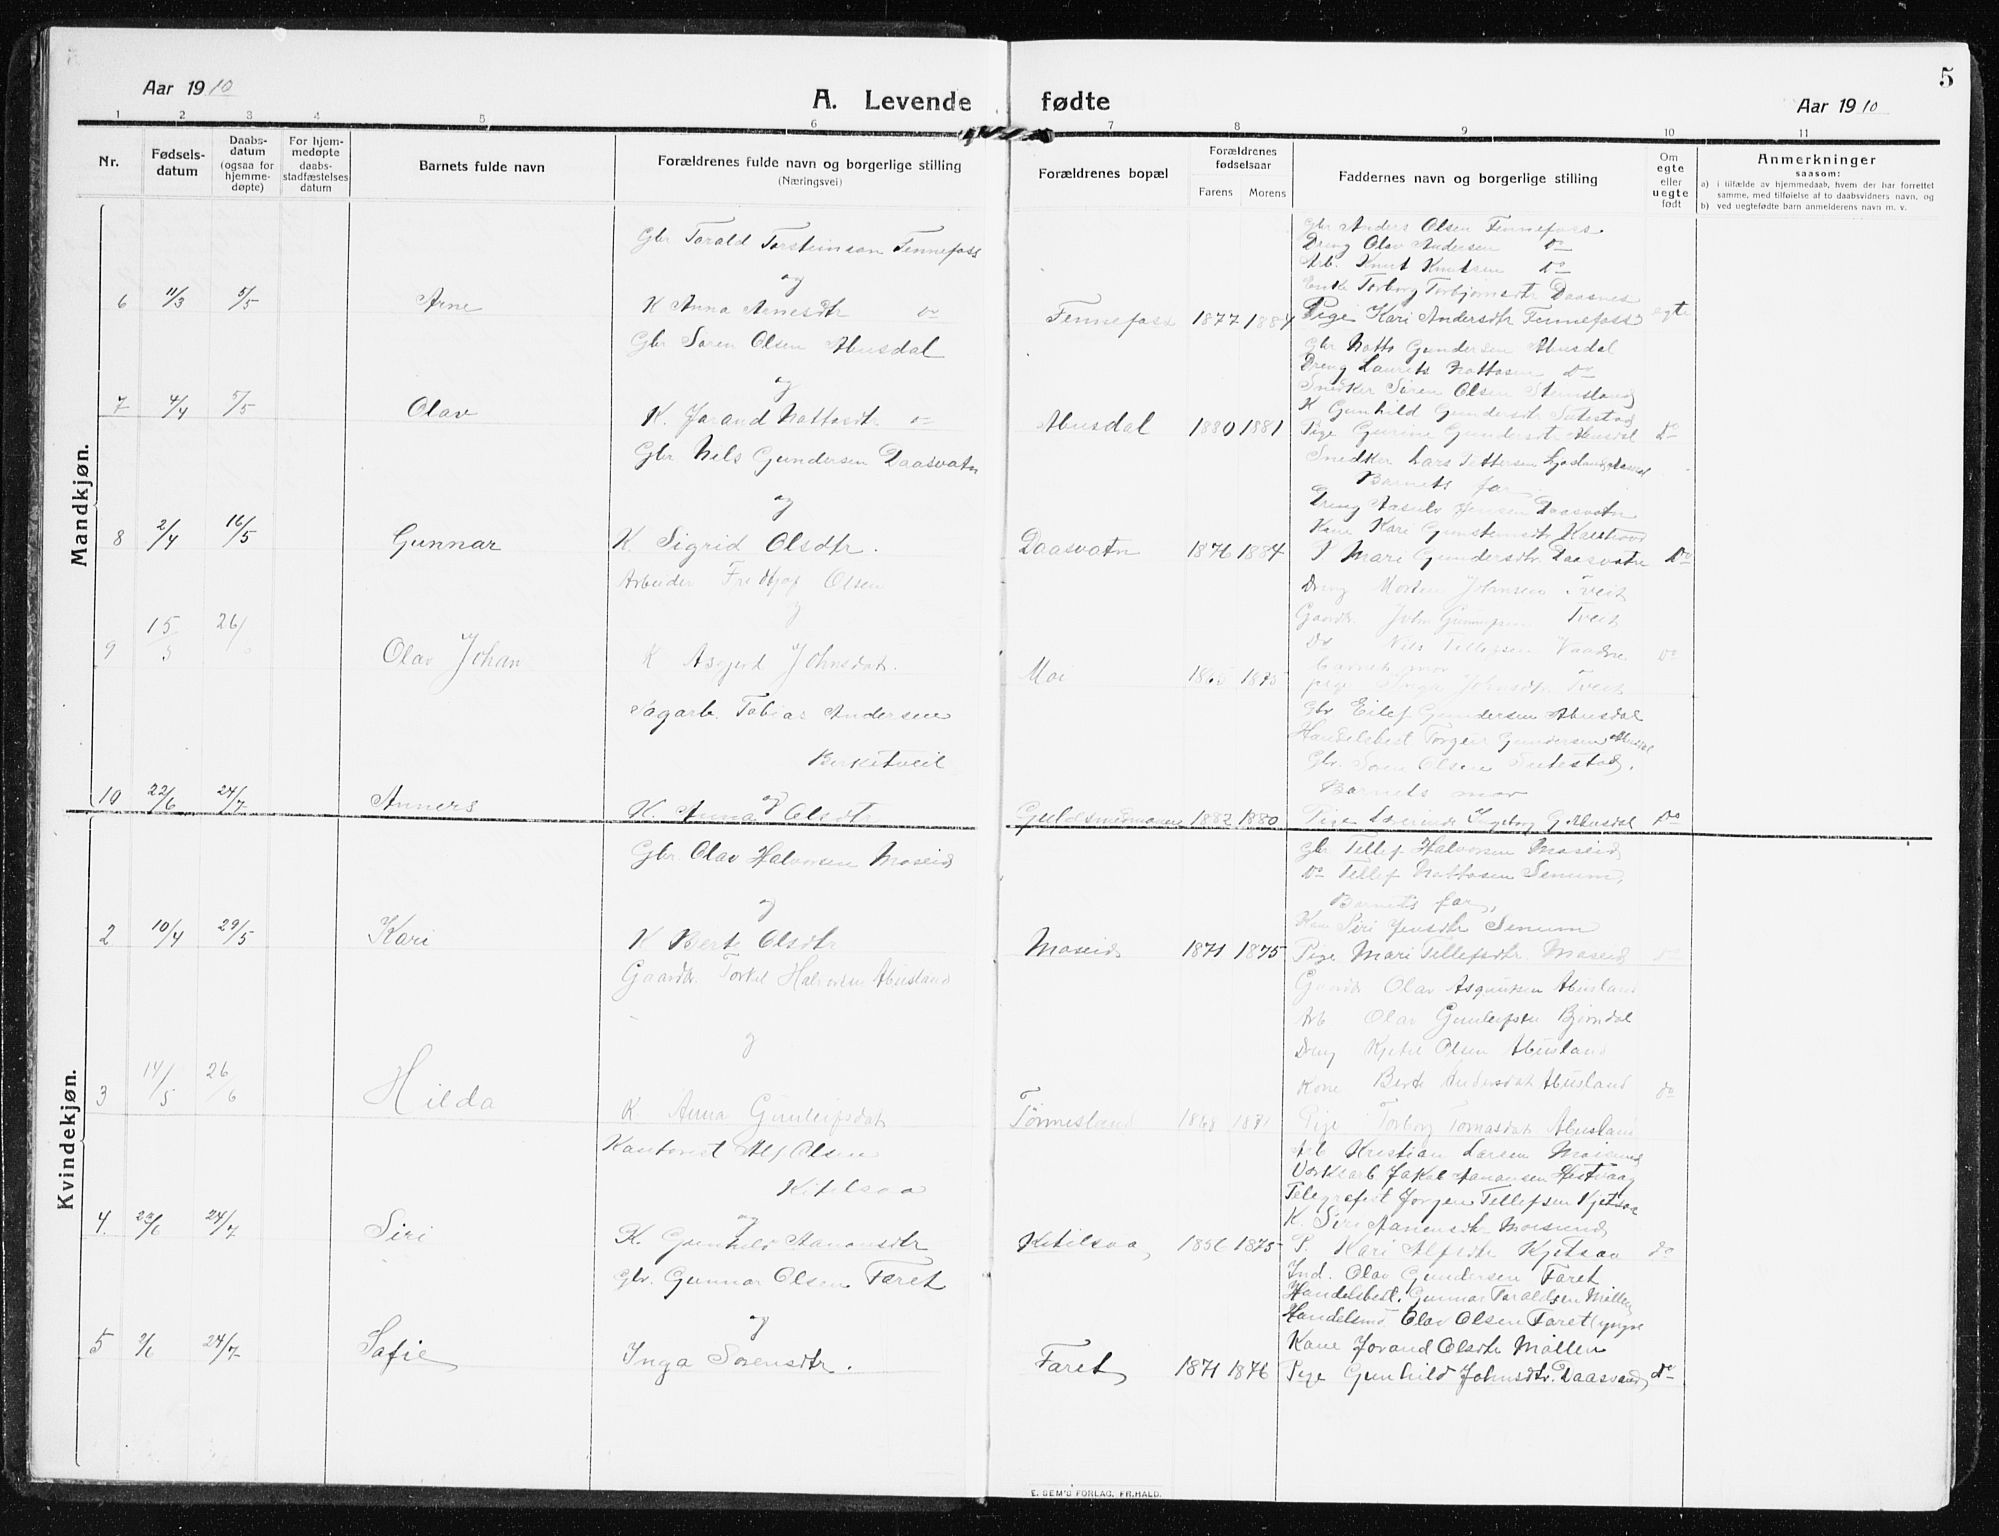 5
Aar 1910
A. Levende fødte
Aar 1910
1 2 3 4 5 6 7 8 9 10 11
Nr.
Fødsels-
datum
Daabs-
datum
(ogsaa for
hjemme-
døpte)
For hjem-
medøpte
daabs-
stadfæstelses
datum
Barnets fulde navn
Forældrenes fulde navn og borgerlige stilling
(Næringsvei)
Forældrenes bopæl
Forældrenes
fødselsaar
Farens Morens
Faddernes navn og borgerlige stilling
Om
egte
eller
uegte
født
Anmerkninger
saasom:
a) i tilfælde av hjemmedaab, hvem der har forrettet
samme, med tilføielse af to daabsvidners navn, og
b) ved uegtefødte barn anmelderens navn m. v.
Mandkjøn.
6 11/3 5/5 Arne
Gbr Torald Torsteinson Fennefoss
og
K Anna Arnesdtr do
Fennefoss 1877 1884
Gbr Anders Olsen Fennefoss
Dreng Olav Andersen do
Arb. Knut Knutsen do
Enke Torborg Torbjørnsdtr Daasnes
Pige Kari Andersdtr Fennefoss
egte
7 4/4 5/5 Olav
Gbr Søren Olsen Abusdal
og
K. Jorand Nottosdtr do
Abusdal 1880 1881
Gbr Notto Gundersen Abusdal
Dreng Laurits Nottosen do
Snedker Søren Olsen
K Gunhild Gundersdtr
Pige Gurine Gundersdtr Abusdal
Do
8 2/4 16/5 Gunnar
Gbr Nils Gundersen Daasvatn
og
K. Sigrid Olsdtr.
Daasvatn 1876 1884
Snedker Lars Pettersen
Barnets far
Dreng Aasulv Jensen Daasvatn
Kone Kari Gunsteinsdtr
P Mari Gundersdtr Daasvatn
Do
9 15/5 26/ Olav Johan
Arbeider Fredthjof Olsen
og
K Asgjerd Johnsdat.
Moi 1875
Dreng Morten Johnsen Tveit
Gaardbr. John Tveit
Do Nils Tellefsen
barnets mor
pige Inga Johnsdtr Tveit
do
10 22/6 24/7 Anners
Sagarb. Tobias Andersen
Berketveit
og
K. Anna Olsdtr
Guldsmedmoen 1882 1880
Gbr Eilef Gundersen Abusdal
Handelsbest Torgeir Gundersen Abusdal
Gbr. Søren Olsen
Barnets mor
Pige Ingeborg G. Abusdal
Do
Kvindekjøn.
2 10/4 29/5 Kari
Gbr Olav Halvorsen Moseid
og
K Berte Olsdtr
Moseid 1871 1875
Gbr Tellef Halvorsen Moseid
Do Tellef Nottosen Senum,
Barnets far,
Kone Siri Jensdtr Senum
Pige Mari Tellefsdtr. Moseid
do
3 14/5 26/6 Hilda
Gaardbr. Torkel Halvorsen Abusland
og
K Anna Gunleifsdat
Tønnesland 1868 1871
Gaardbr Olav Abusland
Arb Olav Gunleifsen Bjørndal
Dreng Kjetil Olsen Abusland
Kone Berte Andersdat Abusland
Pige Torborg Tomasdat Abusland
do
4. 24/7 Siri
Kontorist Alf Olsen
Kitelsaa
og
K. Gunhild Aanonsdtr
Kitelsaa 1856 1875
Arb Kristian Larsen Moisund
Verksarb Jakob Aanonsen
Telegrafist Jørgen Tellefsen Kjetsaa
K. Siri Aanensdtr Moisund
P. Kari Alfsdtr Kjetsaa
do
5 2/6 24/7 Sofie
Gbr. Gunnar Olsen Faret
og
Inga Sørensdtr.
Faret 1871 1876
Ind. Olav Gundersen Faret
Handelsbest. Gunnar Taraldsen Møllen
Handelsmd Olav Olsen Faret yngre
Kone Jorand Olsdtr Møllen
Pige Gunhild Johnsdtr. Daasvand
do
E. SEM'S FORLAG. FR.HALD.